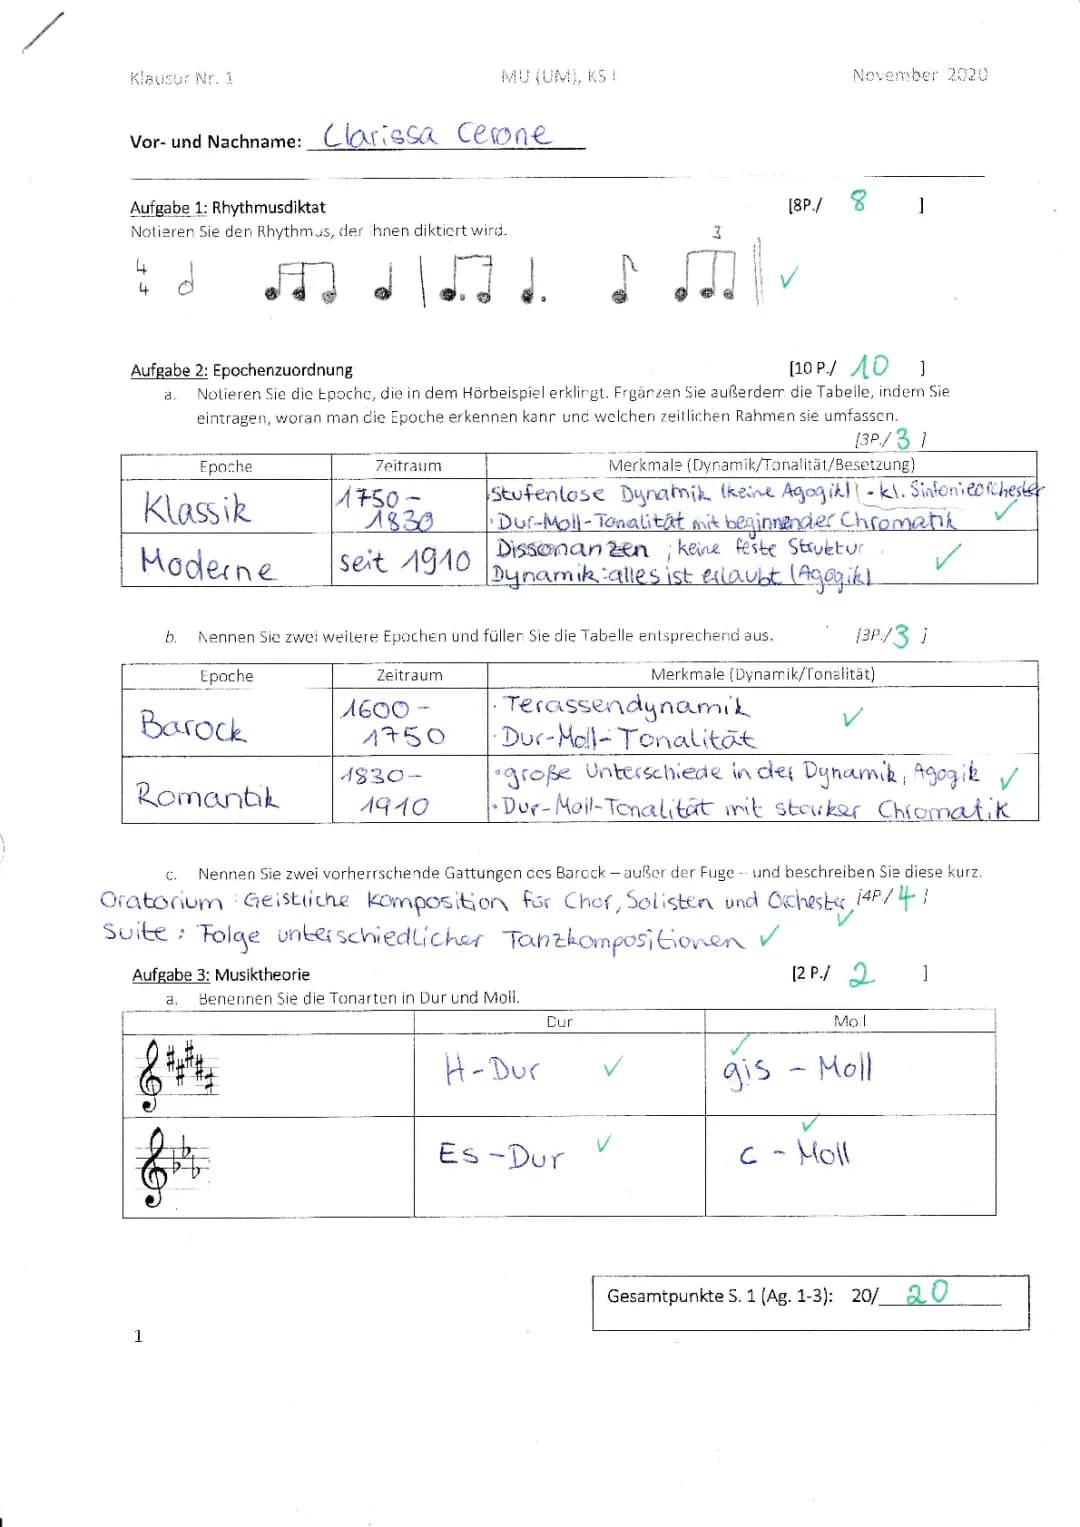 Klausur Nr. 1 MU (UM), KS I November 2020
Vor- und Nachname: Clarissa Cerone
Aufgabe 1: Rhythmusdiktat [8P./ 8 ]
Notieren Sie den Rhythmus, der Ihnen diktiert wird.
3
4
4
Aufgabe 2: Epochenzuordnung [10 P./ 10 ]
a. Notieren Sie die Epoche, die in dem Hörbeispiel erklingt. Ergänzen Sie außerdem die Tabelle, indem Sie
eintragen, woran man die Epoche erkennen kann und welchen zeitlichen Rahmen sie umfassen.
[3P./ 3 ]
Epoche Zeitraum Merkmale (Dynamik/Tonalität/Besetzung)
Klassik 1750 - 1830 Stufenlose Dynamik (keine Agogik!) - kl. Sinfonieorchester
· Dur-Moll-Tonalität mit beginnender Chromatik ✓
Moderne seit 1910 Dissonanzen ; keine feste Struktur ✓
Dynamik: alles ist erlaubt (Agogik)
b. Nennen Sie zwei weitere Epochen und füllen Sie die Tabelle entsprechend aus. [3P./ 3 ]
Epoche Zeitraum Merkmale (Dynamik/Tonalität)
Barock 1600 - 1750 · Terassendynamik ✓
· Dur-Moll-Tonalität
Romantik 1830 - 1910 · große Unterschiede in der Dynamik, Agogik ✓
· Dur-Moll-Tonalität mit starker Chromatik
c. Nennen Sie zwei vorherrschende Gattungen des Barock – außer der Fuge – und beschreiben Sie diese kurz.
Oratorium : Geistliche Komposition für Chor, Solisten und Orchester ✓ [4P/ 4 ]
Suite : Folge unterschiedlicher Tanzkompositionen ✓
Aufgabe 3: Musiktheorie [2 P./ 2 ]
a. Benennen Sie die Tonarten in Dur und Moll.
Dur Moll
H-Dur ✓ gis - Moll ✓
Es-Dur ✓ c - Moll ✓
Gesamtpunkte S. 1 (Ag. 1-3): 20/ 20
1